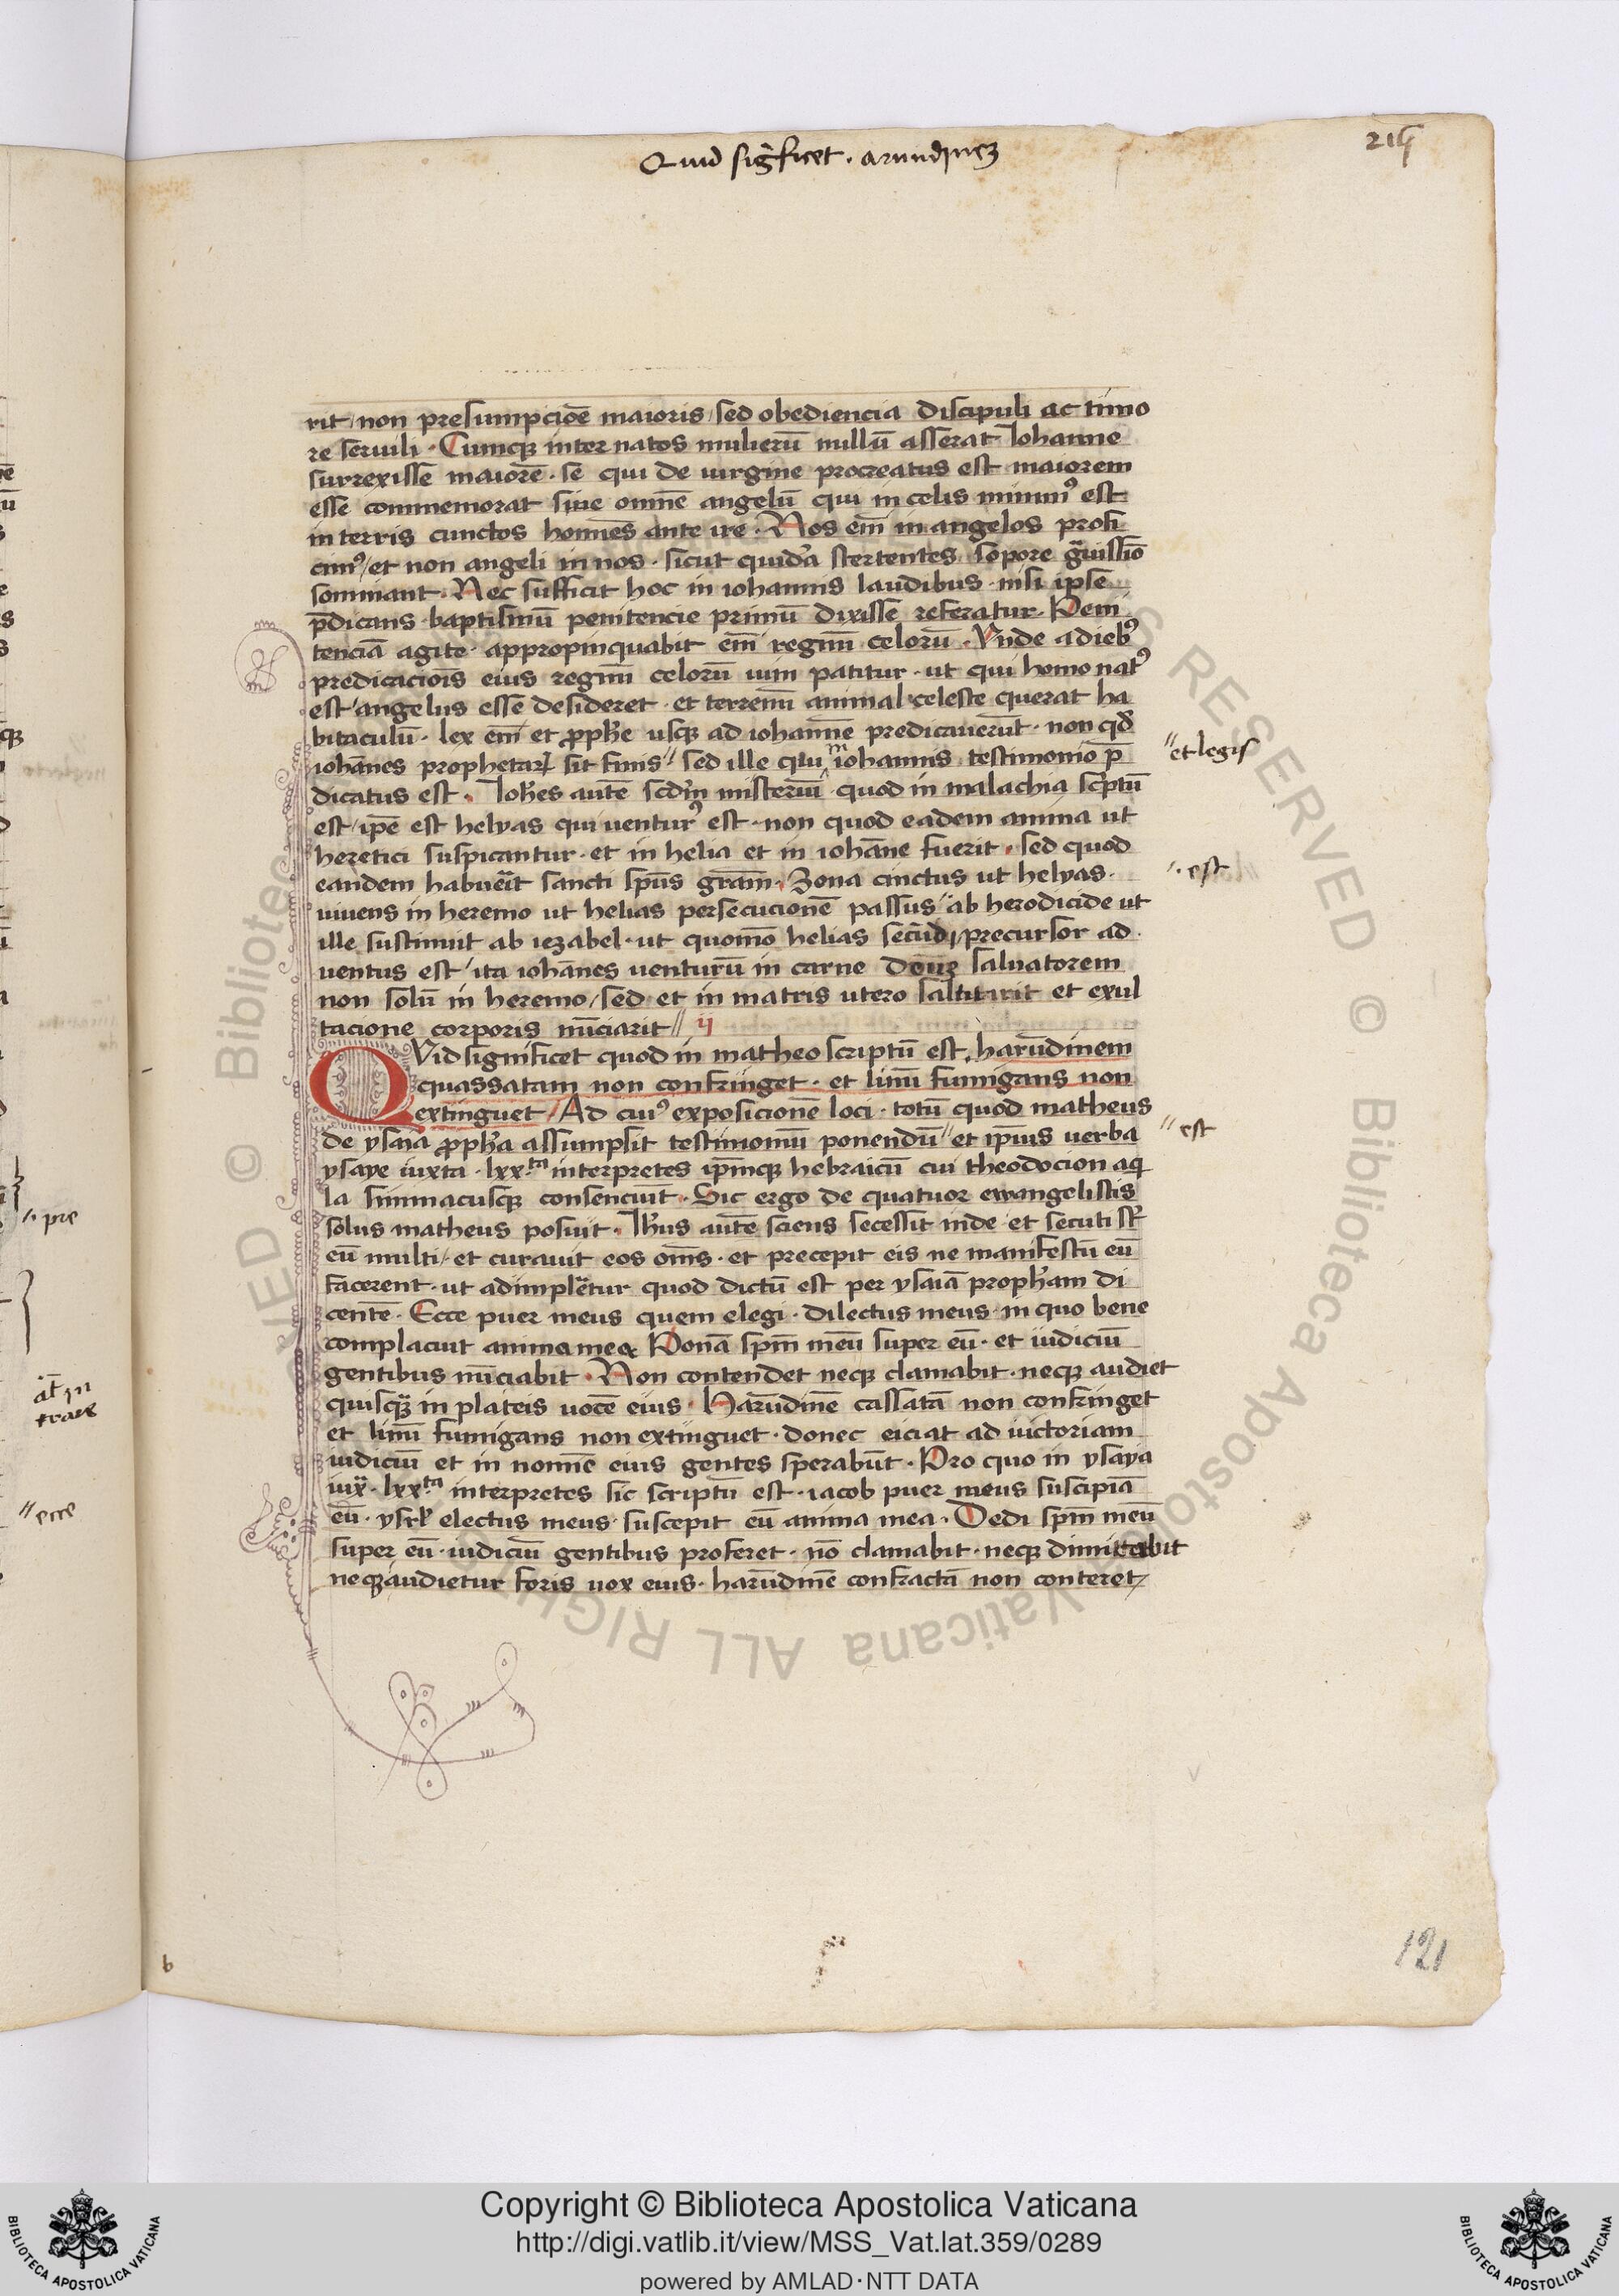 Quid sigͥficet . arundineꝫ
214
rit / non presumpcioē maioris / sed obediencia discipuli ac timo
re seruili · Cumqꝫ inter natos mulierū nullū asserat Iohanne
surrexisse maiorē · se qui de uirgine procreatus est maiorem
esse commemorat siue omnē angelū qui in celis minimꝰ est
in terris cunctos homīes ante ire · Nos eīm in angelos profi
cimꝰ / et non angeli in nos · sicut quidā stertentes sopore gͣuissīo
sominant · Nec sufficit hoc in iohannis laudibus · nisi ipse
p̄dicans · baptismū penitencie primū dixisse referatur · Peni
tenciā agite · appropinquabit eīm regnūm celorū · Vnde a diebꝰ
predicaciōis eius regnūm celorū uim patitur · ut qui homo natꝰ
est / angelus esse desideret · et terrenū animal celeste querat ha
bitaculū · lex eīm et ꝓphe usqꝫ ad iohannē predicauerūt · non qd̓
iohānes prophetaꝝ sit finis // sed ille qui iohannis testimonio p̄
// et legis
dicatus est · Iohēs autē scdm misteriū quod in malachia scͥptū
est / ipē est helyas qui uenturꝰ est · non quod eadem anima ut
heretici suspicantur · et in helia et in iohāne fuerit · sed quod
eandem habuerit sancti spūs gram · Zona cinctus ut helyas ·
// est
uiuens in heremo ut helias persecucionē passus // ab herodicide ut
ille sustinuit ab iezabel · ut quomō helias secūdi / precursor ad
uentus est / ita iohānes venturū in carne deūꝫ saluatorem
non solū in heremo / sed et in matris utero saltitarit et exul
tacione corporis nūciarit // ij
QVid significet quod in matheo scriptū est · harūdinem
quassatam non confringet · et linū fumigans non
extinguet / Ad cuiꝰ exposicionē loci · totū quod matheus
de ysaia ꝓpha assumpsit testimoniū ponendū // et ipīus uerba
// est
ysaye iuxta · lxx.ta interpretes ipmqꝫ hebraicū cui theodocion aq
la simmacusqꝫ consenciūt · Sic ergo de quatuor ewangelistis
solus matheus posuit · Ihus autē sciens secessit inde · et secuti st̄
eū multi / et curauit eos om̄s · et precepit eis ne manifestū eū
facerent · ut adimpletur quod dictū est per ysaiā propham di
centē · Ecce puer meus quem elegi · dilectus meus · in quo bene
complacuit anime meę Ponā spm̄ meū super eū · et iudiciū
gentibus nūciabit · Non contendet neqꝫ clamabit · neqꝫ audiet
quisqͣ in plateis uocē eius · Harūdinē cassatā non confringet
et linū fumigans non extinguet · donec eiciat ad uictoriam
iudiciū et in nomīe eius gentes sperabūt · Pro quo in ysaya
iuxͣ · lxx.ta interpretes sic scriptū est · iacob puer meus suscipiā
eū · ysrl̓ electus meus · suscepit eū anima mea · Dedi spm̄ meū
super eū · iudiciū gentibus proferet · nō clamabit · neqꝫ dimittabit
neqꝫ audietur foris uox eius · harūdinē confractā non conteret /
// pre
al̄ in
// ecce
b
121
Copyright © Biblioteca Apostolica Vaticana
http://digi.vatlib.it/view/MSS_Vat.lat.359/0289
powered by AMLAD·NTT DATA
BIBLIOTECA APOSTOLICA VATICANA
BIBLIOTECA APOSTOLICA VATICANA